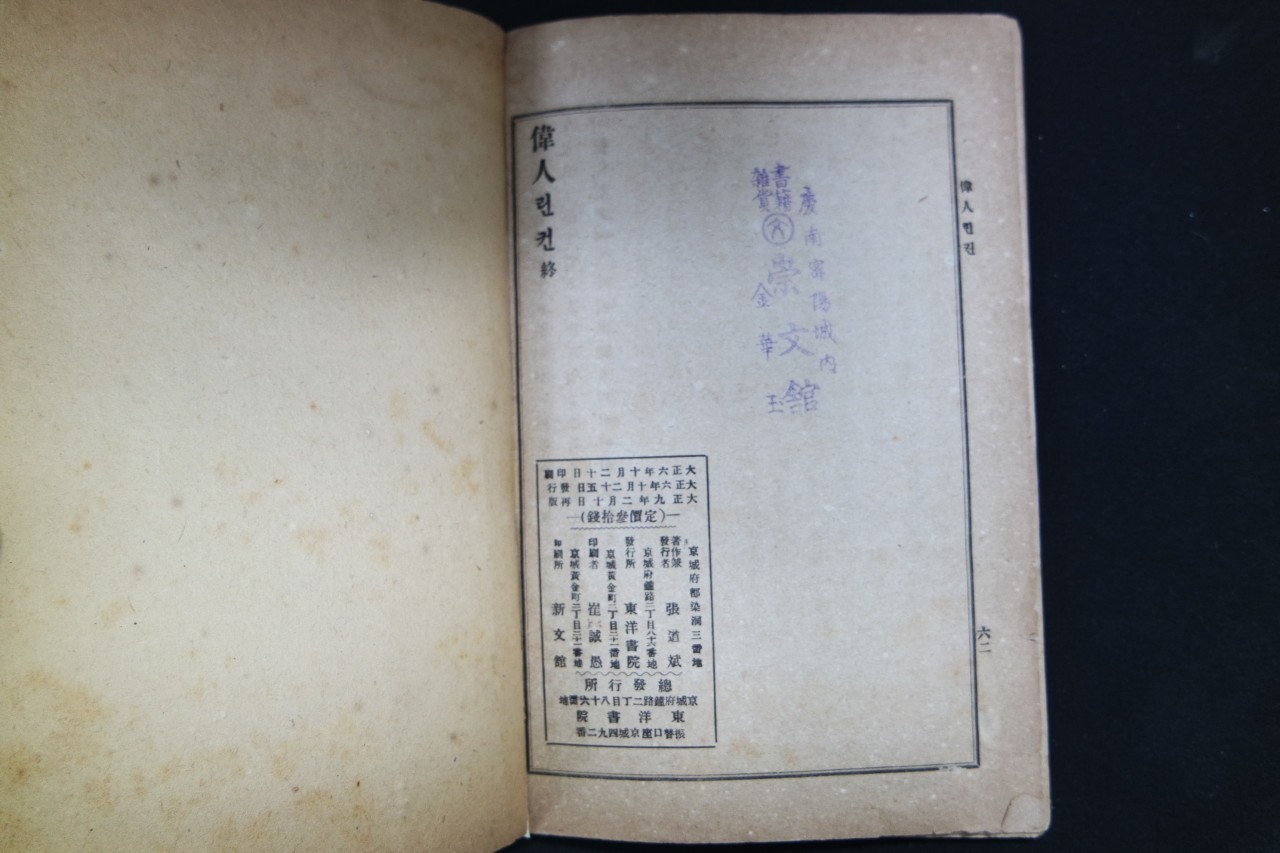 偉人린컨
六二
慶南密陽城內
書籍
雜貨
文
崇文館
金華玉
偉人린컨 終
大正六年十月二十日印刷
大正六年十月二十五日發行
大正九年二月十日再版
―(定價參拾錢)―
京城府都染洞三番地
著作兼
發行者 張道斌
京城府鍾路二丁目八十六番地
發行所 東洋書院
京城黃金町二丁目二十一番地
印刷者 崔誠愚
京城黃金町二丁目二十一番地
印刷所 新文館
總發行所
京城府鍾路二丁目八十六番地
東洋書院
振替口座京城四九二番